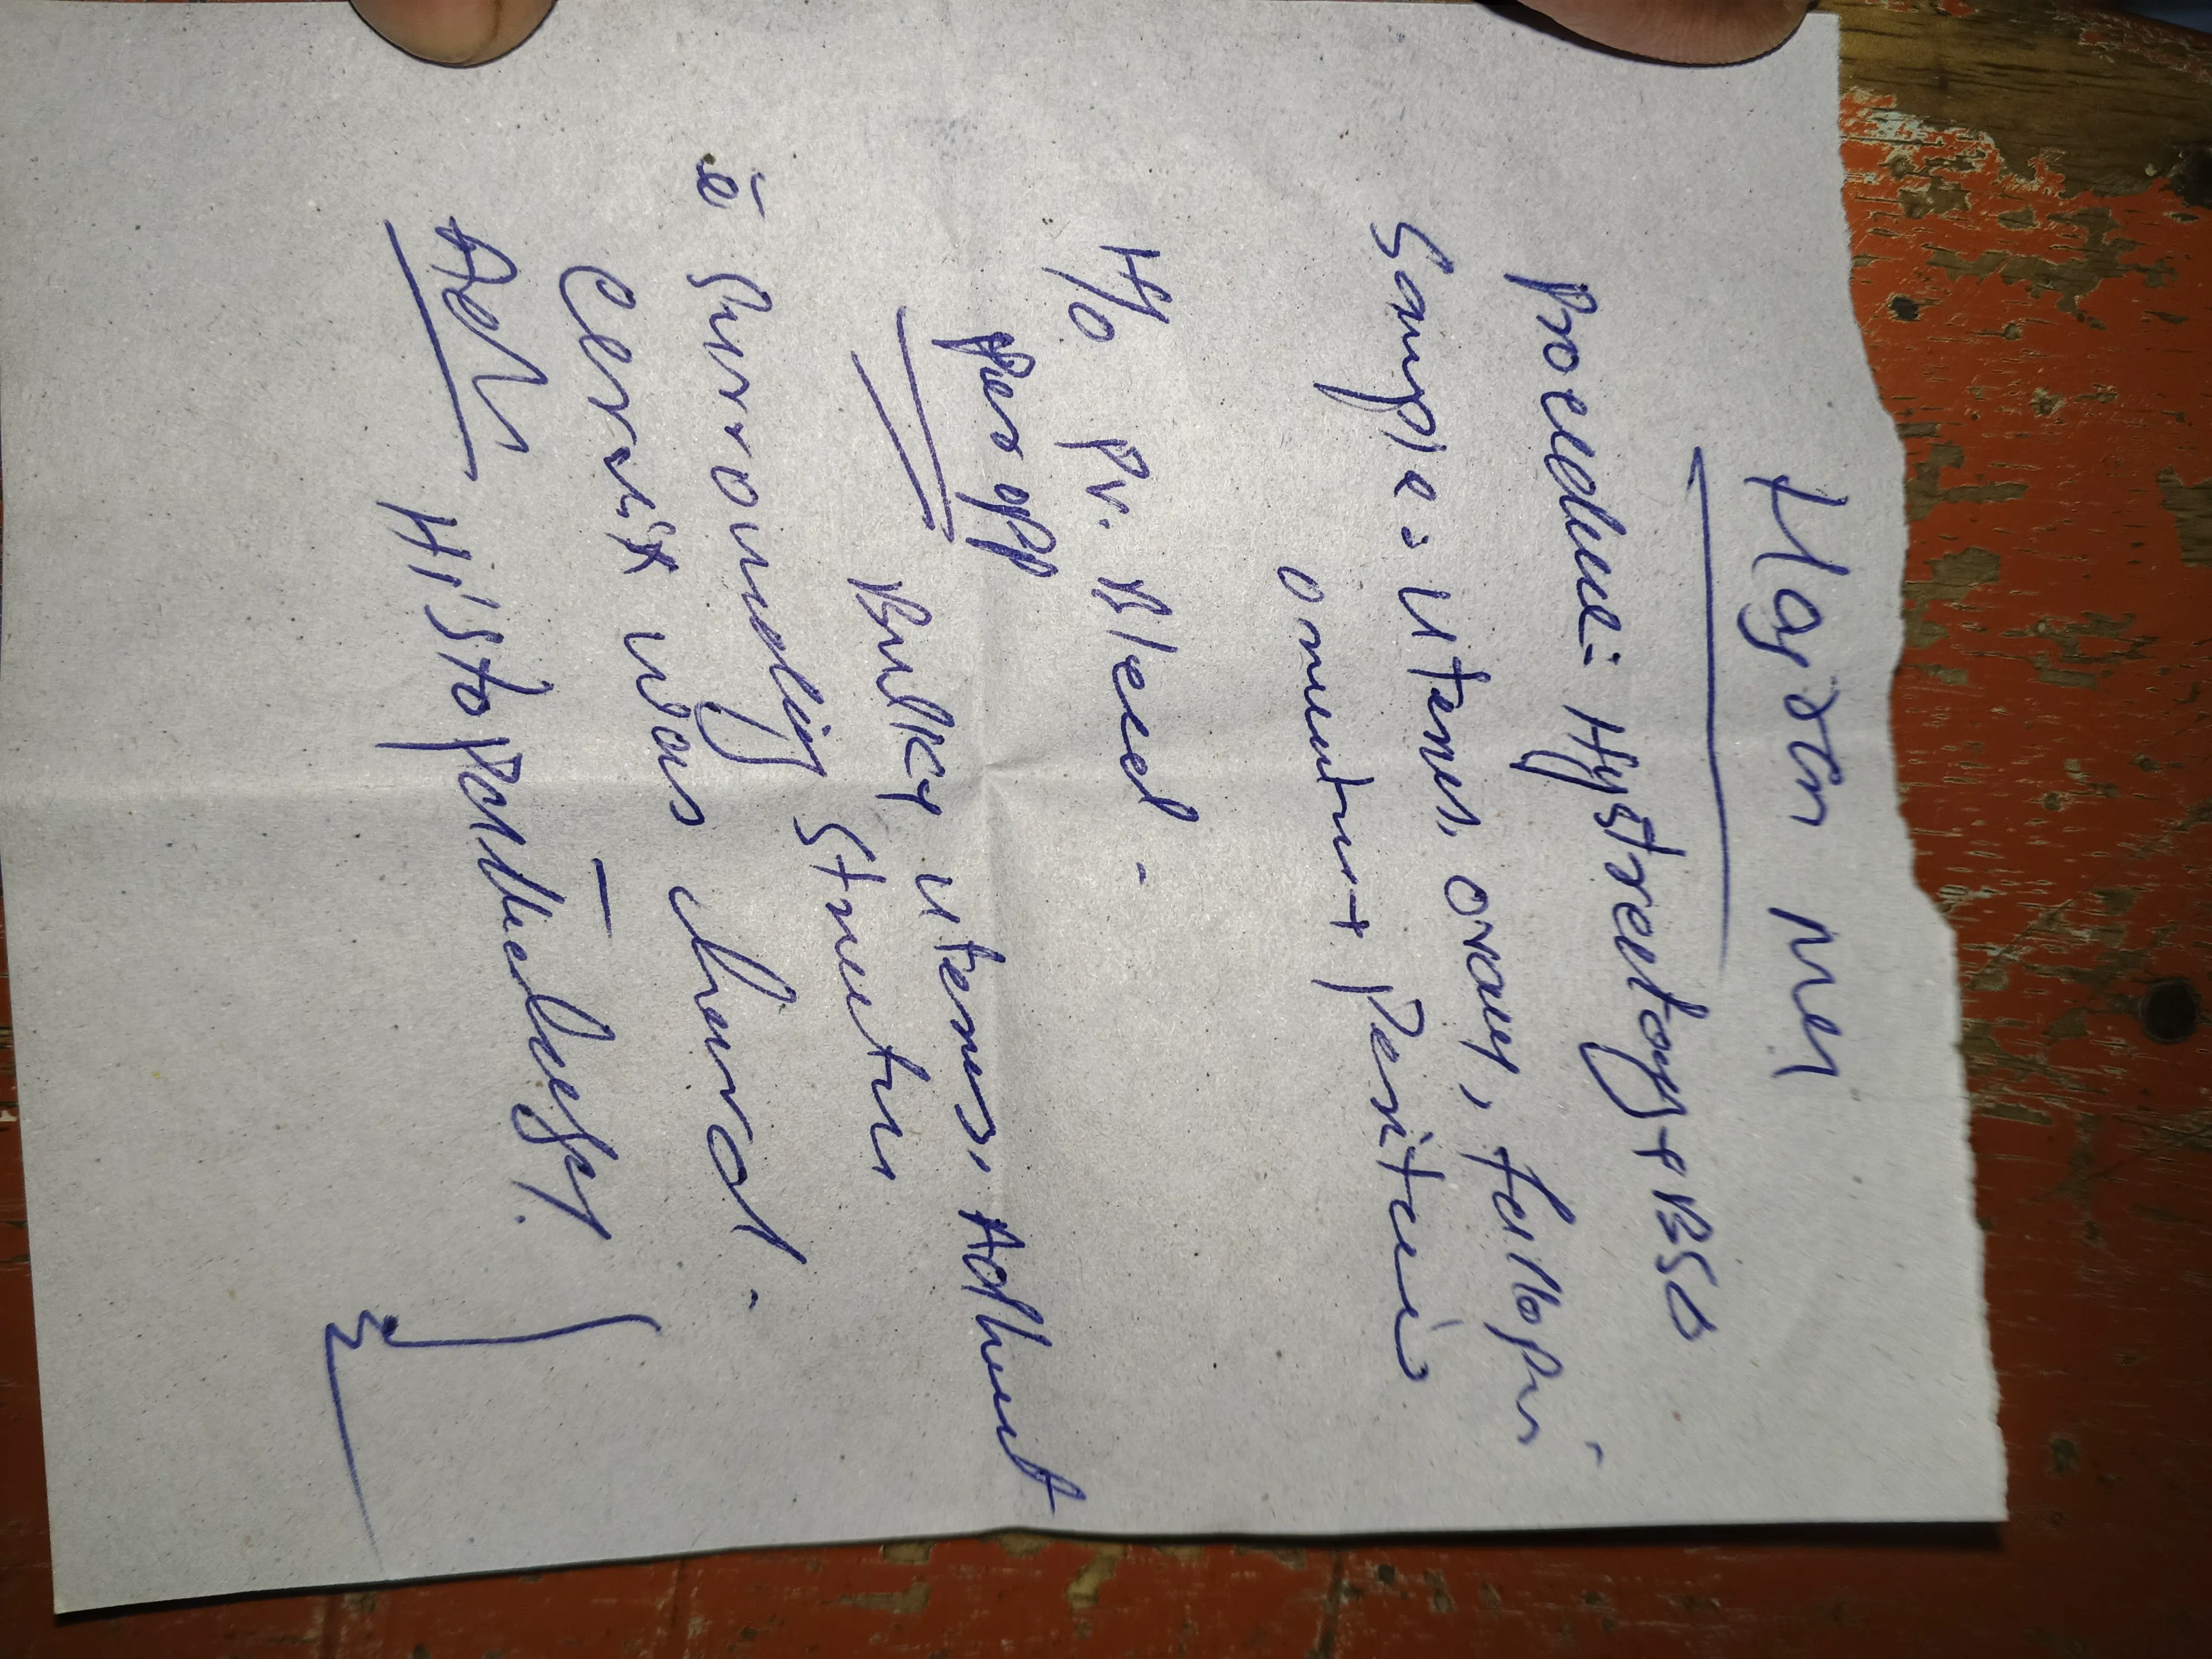 Procedure = Hystrectogy + BSO
Sample = Uterus, ovary, fallopi
omentum + Peritoni
H/o Pv. Bleed -
Per opp
Bulky Uterus, Adhent
c̄ Surrounding Structur
Cervix was
Adv Histopathology.